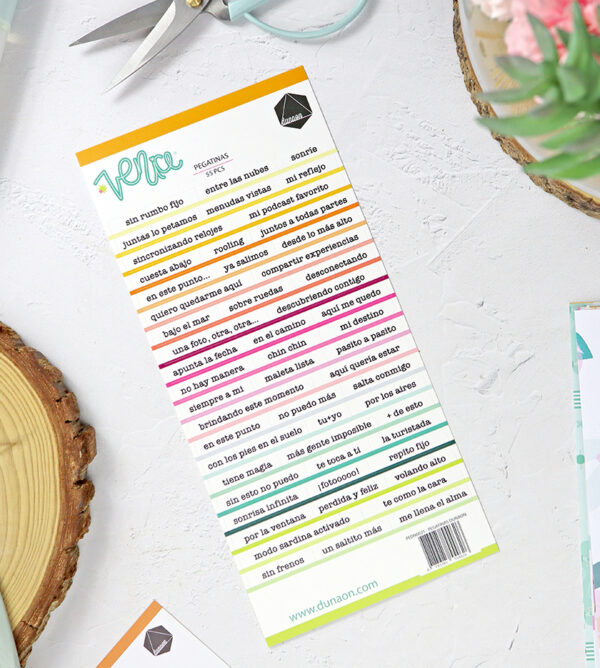 dunaon
vente
PEGATINAS
55 PCS
sin rumbo fijo entre las nubes sonríe
juntas lo petamos menudas vistas mi reflejo
sincronizando relojes mi podcast favorito
cuesta abajo rooling juntos a todas partes
en este punto... ya salimos desde lo más alto
quiero quedarme aquí compartir experiencias
bajo el mar sobre ruedas desconectando
una foto, otra, otra... descubriendo contigo
apunta la fecha en el camino aquí me quedo
no hay manera chin chin mi destino
siempre a mi maleta lista pasito a pasito
brindando este momento aquí quería estar
en este punto no puedo más salta conmigo
con los pies en el suelo tu+yo por los aires
tiene magia más gente imposible + de esto
sin esto no puedo te toca a ti la turistada
sonrisa infinita ¡fotooooo! repito fijo
por la ventana perdida y feliz volando alto
modo sardina activado te como la cara
sin frenos un saltito más me llena el alma
www.dunaon.com
dunaon